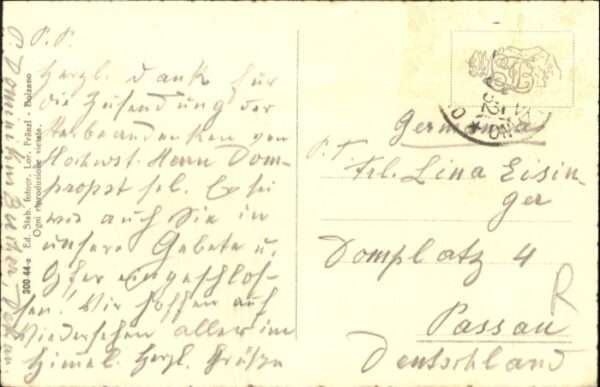 P. P.
Herzl. Dank für
die Zusendung der
Sterbeandenken von
Hochwst. Herrn Dom-
propst sel. Er sei
wie auch Sie in
unsere Gebete u.
Opfer eingeschlos-
sen! Wir hoffen auf
Wiedersehen aller im
Himmel. Herzl. Grüße
P. Dominikus
300 44-a Ed. Stab. fotogr. Lor. Fränzl - Bolzano
Ogni riproduzione vietata.
Germania
P. T.
Frl. Lina Eisin-
ger
Domplatz 4
R
Passau
Deutschland